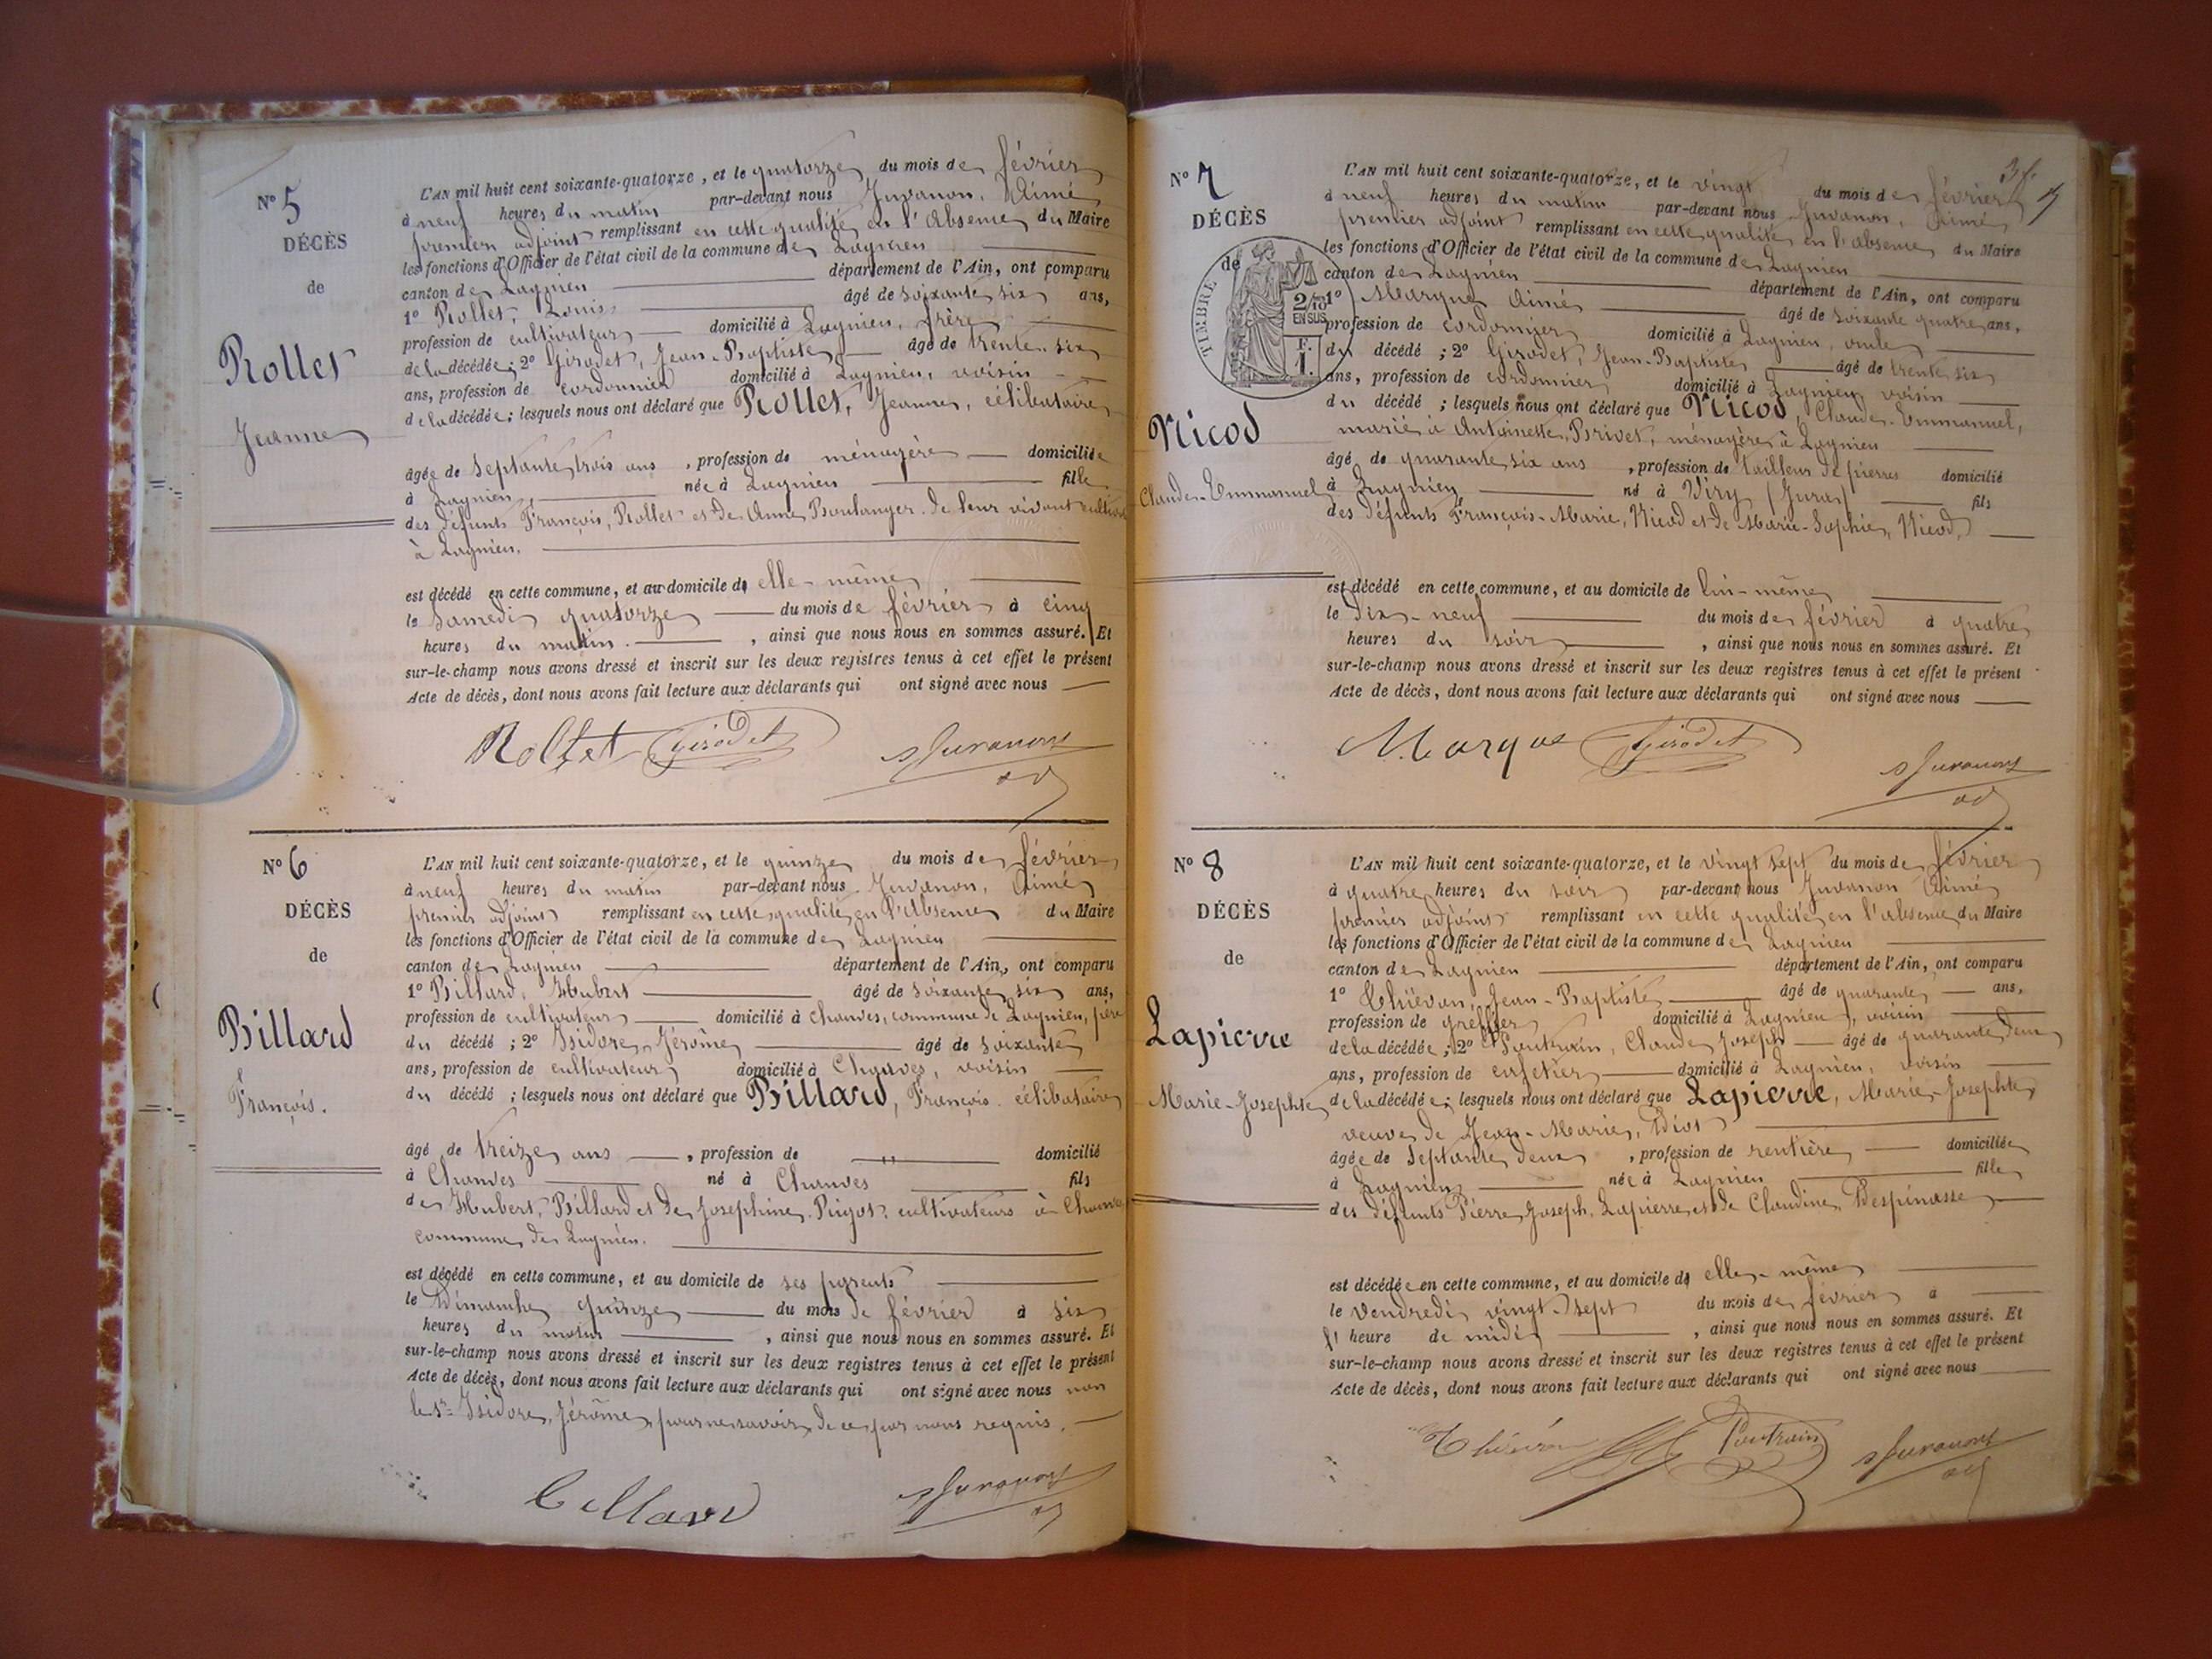 N° 5
DÉCÈS
de
Rollet
Jeanne
L'AN mil huit cent soixante-quatorze, et le quatorze du mois de février
à neuf heures du matin par-devant nous Juvanon, Aimé
premier adjoint remplissant en cette qualité en l'absence du Maire
les fonctions d'Officier de l'état civil de la commune de Lagnieu
canton de Lagnieu département de l'Ain, ont comparu
1° Rollet, Louis âgé de soixante six ans,
profession de cultivateur domicilié à Lagnieu, frère
de la décédée; 2° Girodet, Jean-Baptiste âgé de trente six
ans, profession de cordonnier domicilié à Lagnieu, voisin
de la décédée; lesquels nous ont déclaré que Rollet, Jeanne, célibataire
âgée de septante trois ans, profession de ménagère domiciliée
à Lagnieu née à Lagnieu fille
des défunts François, Rollet et de Anne Boulanger de leur vivant
à Lagnieu.
est décédé en cette commune, et au domicile de elle-même
le samedi quatorze du mois de février à cinq
heures du matin, ainsi que nous nous en sommes assuré. Et
sur-le-champ nous avons dressé et inscrit sur les deux registres tenus à cet effet le présent
Acte de décès, dont nous avons fait lecture aux déclarants qui ont signé avec nous
Rollet Girodet Juvanon
adj
N° 6
DÉCÈS
de
Billard
François.
L'AN mil huit cent soixante-quatorze, et le quinze du mois de février
à neuf heures du matin par-devant nous Juvanon, Aimé
premier adjoint remplissant en cette qualité en l'absence du Maire
les fonctions d'Officier de l'état civil de la commune de Lagnieu
canton de Lagnieu département de l'Ain, ont comparu
1° Billard, Hubert âgé de soixante six ans,
profession de cultivateur domicilié à Chanves, commune de Lagnieu, père
du décédé; 2° Isidore, Jérôme âgé de soixante
ans, profession de cultivateur domicilié à Chanves, voisin
du décédé; lesquels nous ont déclaré que Billard, François célibataire
âgé de treize ans, profession de " domicilié
à Chanves né à Chanves fils
de Hubert, Billard et de Josephine, cultivateurs à Chanves
commune de Lagnieu.
est décédé en cette commune, et au domicile de ses parents
le Dimanche quinze du mois de février à six
heures du matin, ainsi que nous nous en sommes assuré. Et
sur-le-champ nous avons dressé et inscrit sur les deux registres tenus à cet effet le présent
Acte de décès, dont nous avons fait lecture aux déclarants qui ont signé avec nous non
le sr Isidore, Jérôme pour ne savoir de ce par nous requis.
Billard Juvanon
adj
3 f.
N° 7
DÉCÈS
de
TIMBRE
2/10 EN SUS
F. 1.
Nicod
Claude-Emmanuel
L'AN mil huit cent soixante-quatorze, et le vingt du mois de février
à neuf heures du matin par-devant nous Juvanon, Aimé
premier adjoint remplissant en cette qualité en l'absence du Maire
les fonctions d'Officier de l'état civil de la commune de Lagnieu
canton de Lagnieu département de l'Ain, ont comparu
1° Margue Aimé âgé de soixante quatre ans,
profession de cordonnier domicilié à Lagnieu, oncle
du décédé; 2° Girodet, Jean-Baptiste âgé de trente six
ans, profession de cordonnier domicilié à Lagnieu, voisin
du décédé; lesquels nous ont déclaré que Nicod, Claude-Emmanuel,
marié à Antoinette, Brivet, ménagère à Lagnieu
âgé de quarante six ans, profession de tailleur de pierres domicilié
à Lagnieu né à Viry (Jura) fils
des défunts François-Marie, Nicod et de Marie-Sophie, Nicod,
est décédé en cette commune, et au domicile de lui-même
le dix-neuf du mois de février à quatre
heures du soir, ainsi que nous nous en sommes assuré. Et
sur-le-champ nous avons dressé et inscrit sur les deux registres tenus à cet effet le présent
Acte de décès, dont nous avons fait lecture aux déclarants qui ont signé avec nous
Margue Girodet Juvanon
adj
N° 8
DÉCÈS
de
Lapierre
Marie-Josephte
L'AN mil huit cent soixante-quatorze, et le vingt sept du mois de février
à quatre heures du soir par-devant nous Juvanon Aimé
premier adjoint remplissant en cette qualité en l'absence du Maire
les fonctions d'Officier de l'état civil de la commune de Lagnieu
canton de Lagnieu département de l'Ain, ont comparu
1° Jean-Baptiste âgé de quarante ans,
profession de greffier domicilié à Lagnieu, voisin
de la décédée; 2° Poutrain, Claude Joseph âgé de quarante deux
ans, profession de cafetier domicilié à Lagnieu, voisin
de la décédée; lesquels nous ont déclaré que Lapierre, Marie-Josephte,
veuve de Jean-Marie,
âgée de septante deux, profession de rentière domiciliée
à Lagnieu née à Lagnieu fille
des défunts Pierre Joseph, Lapierre et de Claudine, Despinasse
est décédée en cette commune, et au domicile de elle-même
le Vendredi vingt-sept du mois de février à
l' heure de midi, ainsi que nous nous en sommes assuré. Et
sur-le-champ nous avons dressé et inscrit sur les deux registres tenus à cet effet le présent
Acte de décès, dont nous avons fait lecture aux déclarants qui ont signé avec nous
Poutrain Juvanon
adj